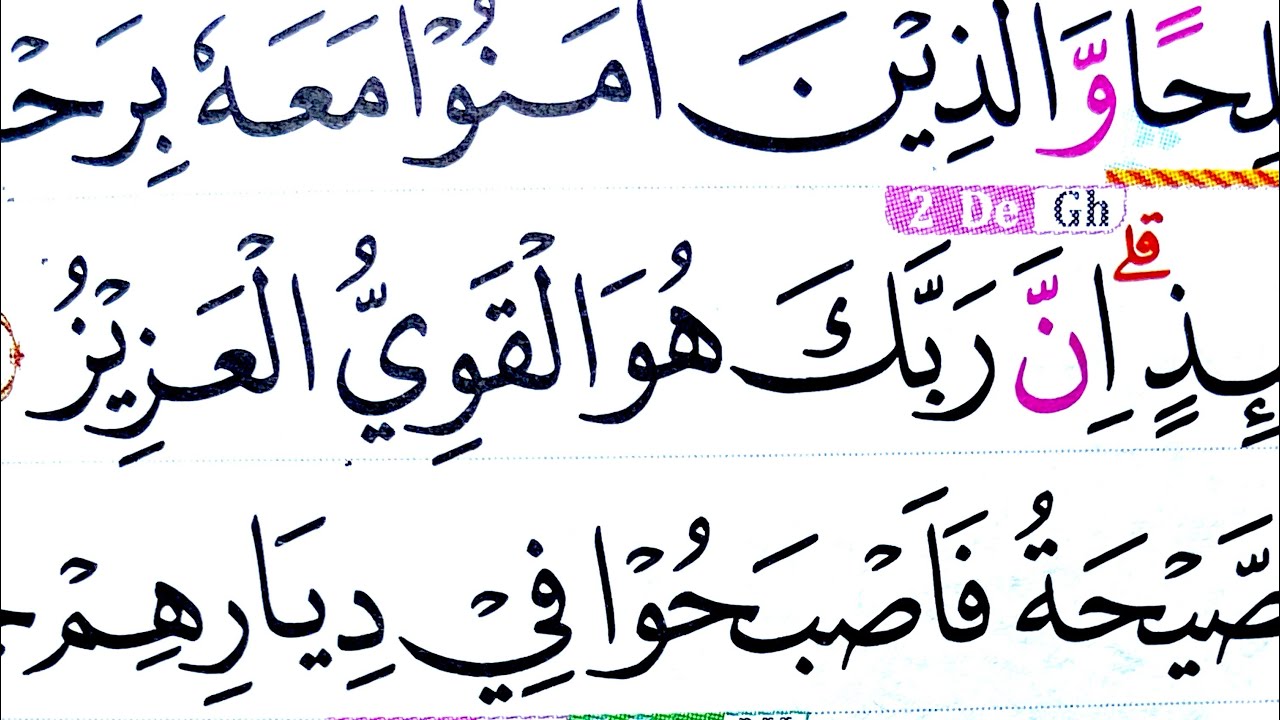 لِحًا وَّالَّذِيْنَ اٰمَنُوْا مَعَهٗ بِرَحْ
2 De Gh
ئِذٍ ۗ اِنَّ رَبَّكَ هُوَ الْقَوِيُّ الْعَزِيْزُ
صَّيْحَةُ فَاَصْبَحُوْا فِيْ دِيَارِهِمْ